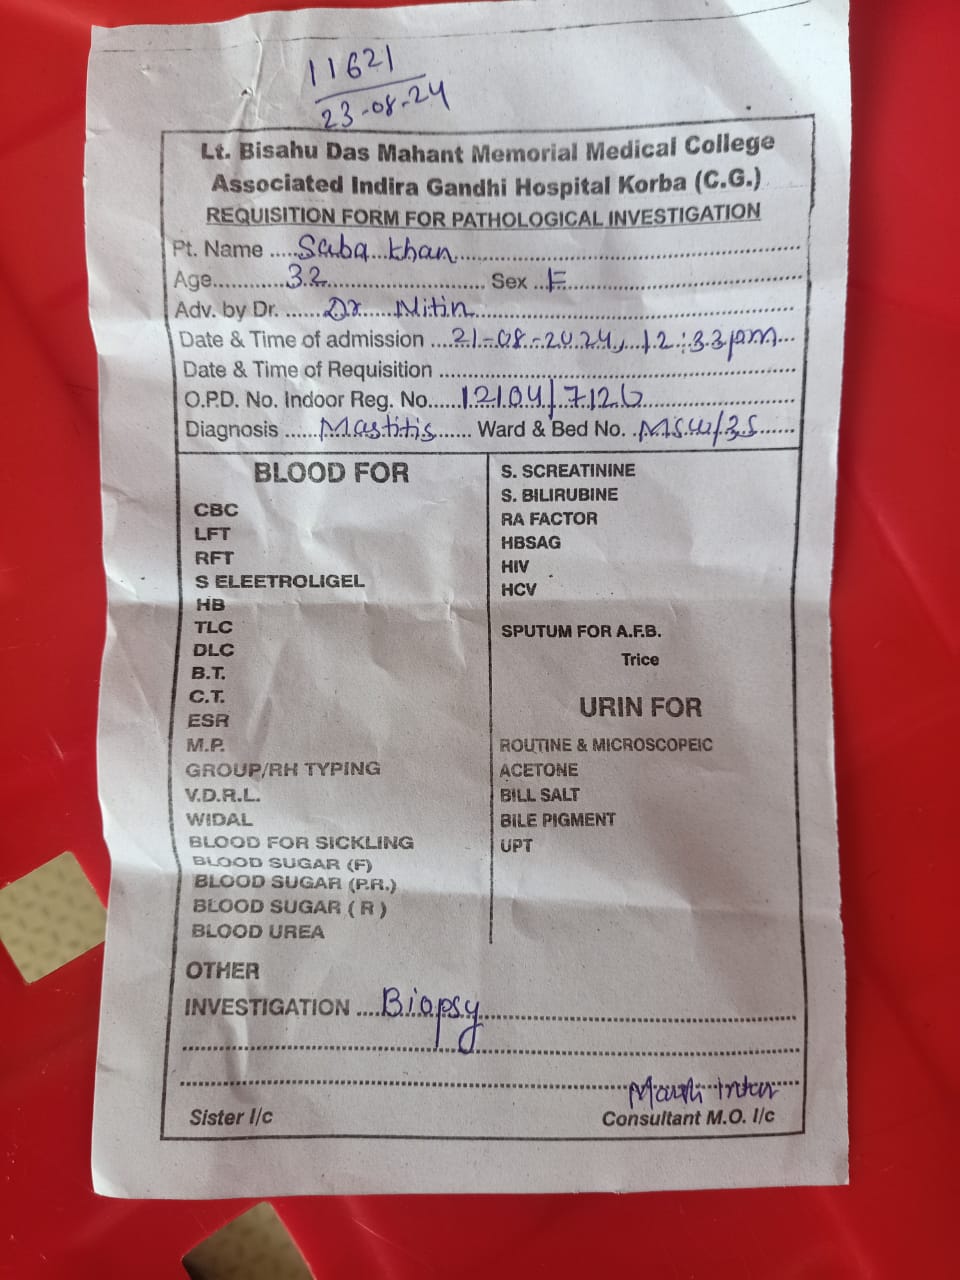 11621
23-08-24
Lt. Bisahu Das Mahant Memorial Medical College
Associated Indira Gandhi Hospital Korba (C.G.)
REQUISITION FORM FOR PATHOLOGICAL INVESTIGATION
Pt. Name ..... Saba Khan
Age............ 32 ............ Sex .. F
Adv. by Dr. ...... Dr. Nitin
Date & Time of admission ... 21-08-2024, 12:33pm...
Date & Time of Requisition ............
O.P.D. No. Indoor Reg. No..... 12104/7126
Diagnosis ...... Mastitis ...... Ward & Bed No. .. MSW/35......
BLOOD FOR
CBC
LFT
RFT
S ELEETROLIGEL
HB
TLC
DLC
B.T.
C.T.
ESR
M.P.
GROUP/RH TYPING
V.D.R.L.
WIDAL
BLOOD FOR SICKLING
BLOOD SUGAR (F)
BLOOD SUGAR (P.R.)
BLOOD SUGAR ( R )
BLOOD UREA
S. SCREATININE
S. BILIRUBINE
RA FACTOR
HBSAG
HIV
HCV
SPUTUM FOR A.F.B.
Trice
URIN FOR
ROUTINE & MICROSCOPEIC
ACETONE
BILL SALT
BILE PIGMENT
UPT
OTHER
INVESTIGATION .... Biopsy
Sister I/c
Consultant M.O. I/c